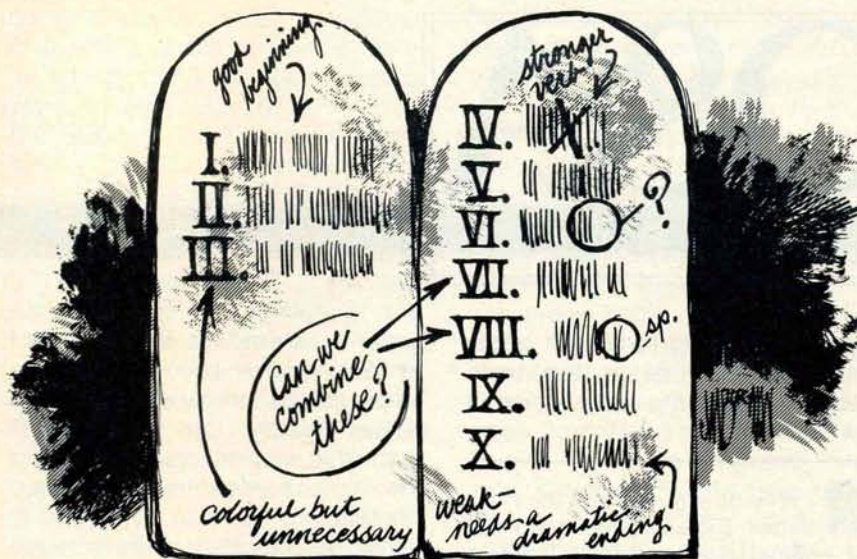 good
beginning
I.
II.
III.
Can we
combine
these?
colorful but
unnecessary
stronger
verb
IV.
V.
VI.
?
VII.
VIII.
sp.
IX.
X.
weak-
needs a
dramatic
ending